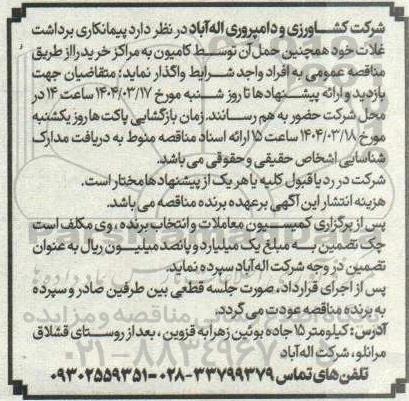 شرکت کشاورزی و دامپروری اله‌آباد در نظر دارد پیمانکاری برداشت
غلات خود همچنین حمل آن توسط کامیون به مراکز خرید را از طریق
مناقصه عمومی به افراد واجد شرایط واگذار نماید؛ متقاضیان جهت
بازدید و ارائه پیشنهادها تا روز شنبه مورخ ۱۴۰۴/۰۳/۱۷ ساعت ۱۴ در
محل شرکت حضور به هم رسانند. زمان بازگشایی پاکت‌ها روز یکشنبه
مورخ ۱۴۰۴/۰۳/۱۸ ساعت ۱۵ ارائه اسناد مناقصه منوط به دریافت مدارک
شناسایی اشخاص حقیقی و حقوقی می باشد.
شرکت در رد یا قبول کلیه یا هر یک از پیشنهادها مختار است.
هزینه انتشار این آگهی بر عهده برنده مناقصه می باشد.
پس از برگزاری کمیسیون معاملات و انتخاب برنده، وی مکلف است
چک تضمین به مبلغ یک میلیارد و پانصد میلیون ریال به عنوان
تضمین در وجه شرکت اله‌آباد سپرده نماید.
پس از اجرای قرارداد، صورت جلسه قطعی بین طرفین صادر و سپرده
به برنده مناقصه عودت می گردد.
آدرس: کیلومتر ۱۵ جاده بوئین زهرا به قزوین، بعد از روستای قشلاق
مرانلو، شرکت اله‌آباد
تلفن های تماس ۳۳۷۹۹۳۷۹-۰۲۸ -۰۹۳۰۲۵۵۹۳۵۱